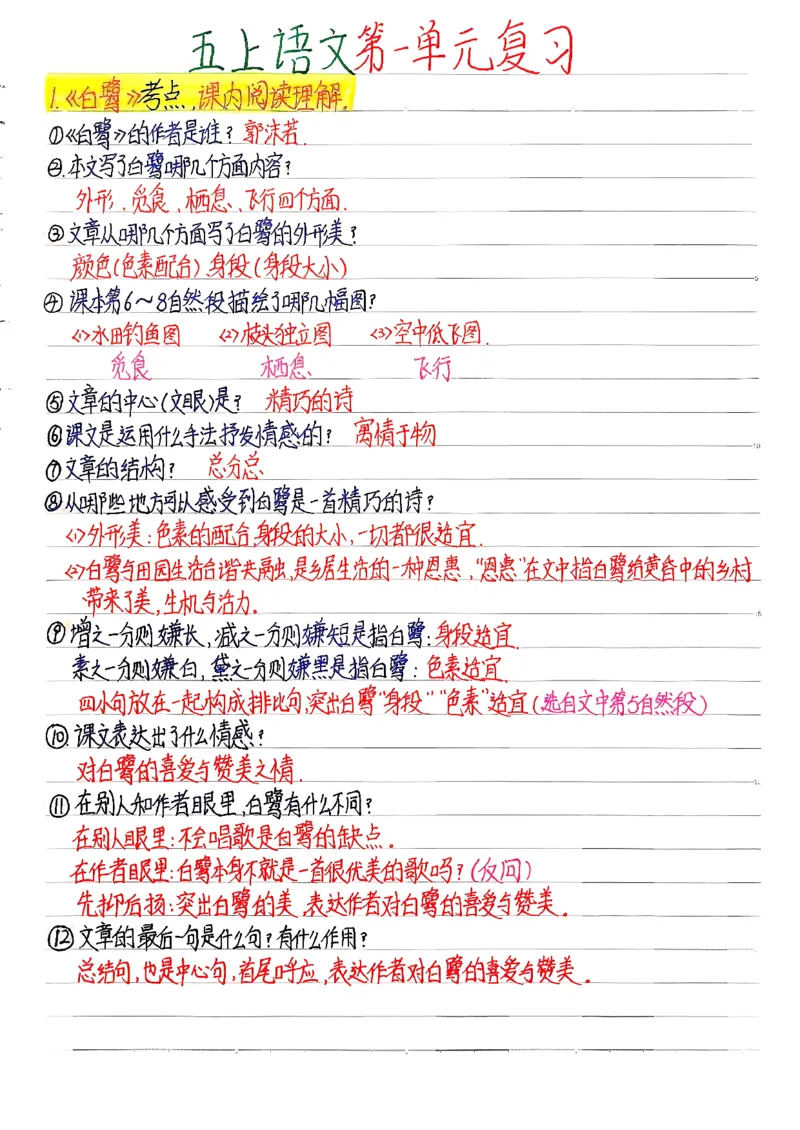 五上语文第一单元复习
1.《白鹭》考点,课内阅读理解.
①《白鹭》的作者是谁?郭沫若.
②.本文写了白鹭哪几个方面内容?
外形、觅食、栖息、飞行四个方面.
③文章从哪几个方面写了白鹭的外形美?
颜色(色素配合)身段(身段大小)
④课本第6~8自然段描绘了哪几幅图?
<1>水田钓鱼图 <2>枝头独立图 <3>空中低飞图.
觅食 栖息 飞行
⑤文章的中心(文眼)是? 精巧的诗
⑥课文是运用什么手法抒发情感的? 寓情于物
⑦文章的结构? 总分总
⑧从哪些地方可以感受到白鹭是一首精巧的诗?
<1>外形美:色素的配合,身段的大小,一切都很适宜.
<2>白鹭与田园生活台谐共融,是乡居生活的一种恩惠,"恩惠"在文中指白鹭给黄昏中的乡村
带来了美,生机与活力.
⑨增之一分则嫌长,减之一分则嫌短是指白鹭:身段适宜.
素之一分则嫌白,黛之一分则嫌黑是指白鹭:色素适宜.
四小句放在一起,构成排比句,突出白鹭"身段""色素"适宜(选自文中第5自然段)
⑩.课文表达出了什么情感?
对白鹭的喜爱与赞美之情.
⑪在别人和作者眼里,白鹭有什么不同?
在别人眼里:不会唱歌是白鹭的缺点.
在作者眼里:白鹭本身不就是一首很优美的歌吗?(反问)
先抑后扬:突出白鹭的美,表达作者对白鹭的喜爱与赞美.
⑫文章的最后一句是什么句?有什么作用?
总结句,也是中心句,首尾呼应,表达作者对白鹭的喜爱与赞美.